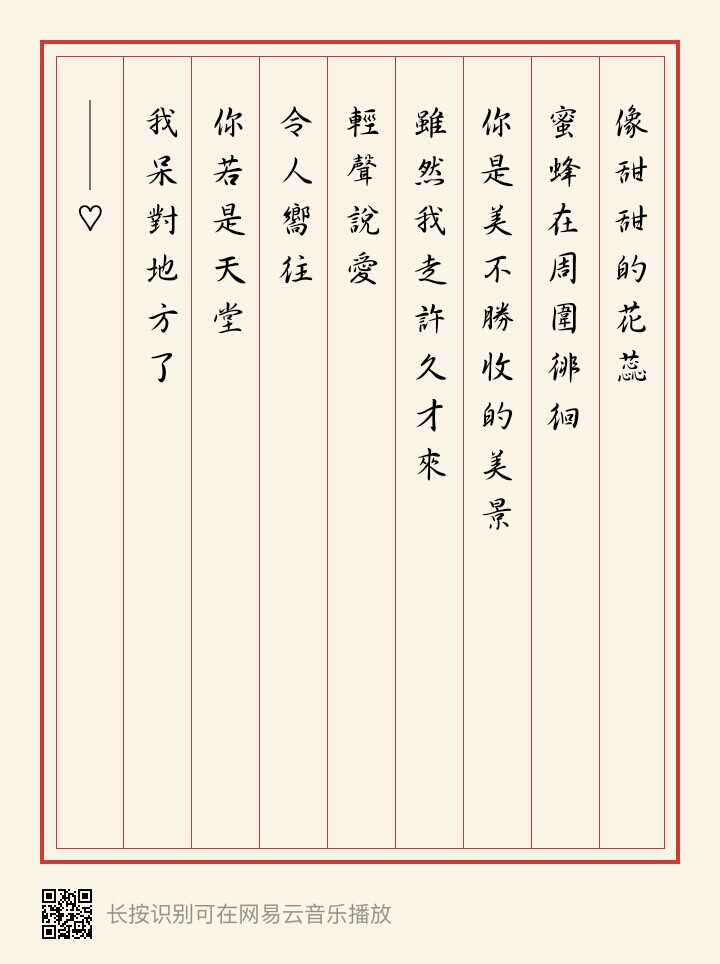 像甜甜的花蕊
蜜蜂在周圍徘徊
你是美不勝收的美景
雖然我走許久才來
輕聲說愛
令人嚮往
你若是天堂
我呆對地方了
——♡
长按识别可在网易云音乐播放